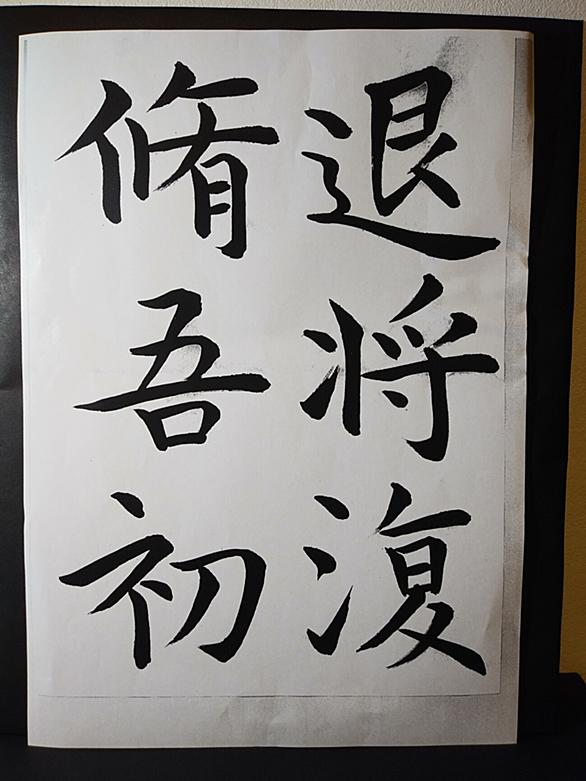 退将復
脩吾初